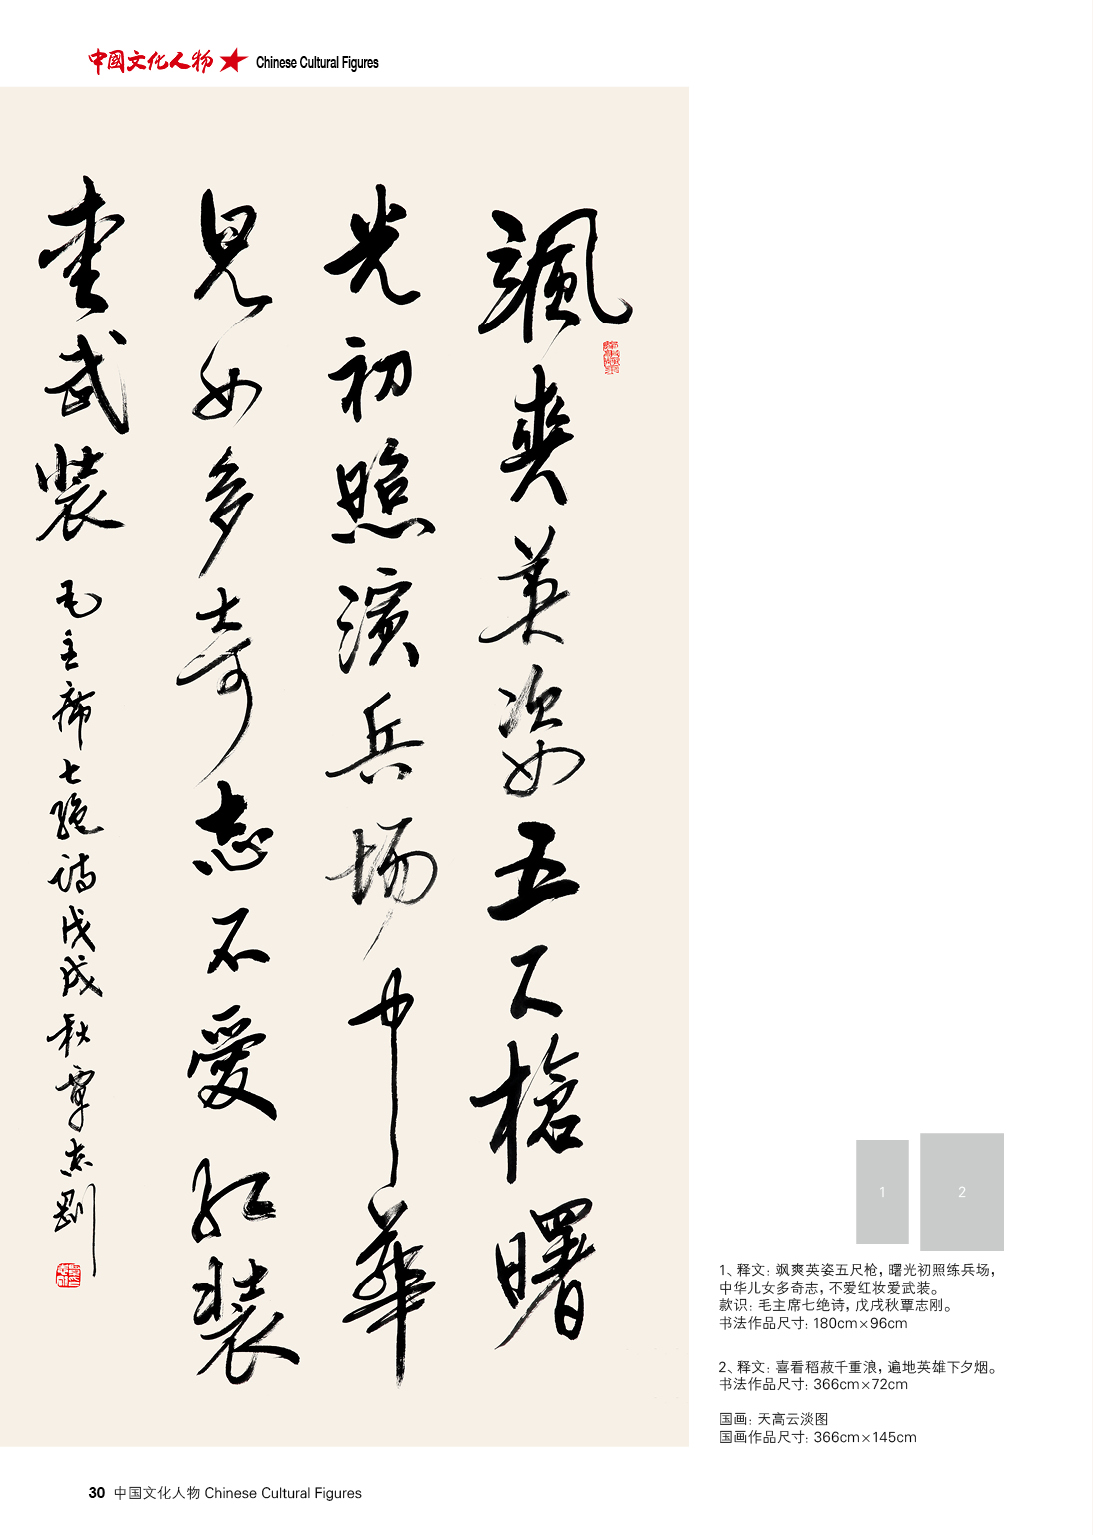 中國文化人物 Chinese Cultural Figures
颯爽英姿五尺槍曙
光初照演兵場中華
兒女多奇志不愛紅裝
愛武裝
毛主席七絕詩戊戌秋覃志剛
1
2
1、释文: 飒爽英姿五尺枪, 曙光初照练兵场,
中华儿女多奇志, 不爱红妆爱武装。
款识: 毛主席七绝诗, 戊戌秋覃志刚。
书法作品尺寸: 180cm×96cm
2、释文: 喜看稻菽千重浪, 遍地英雄下夕烟。
书法作品尺寸: 366cm×72cm
国画: 天高云淡图
国画作品尺寸: 366cm×145cm
30 中国文化人物 Chinese Cultural Figures